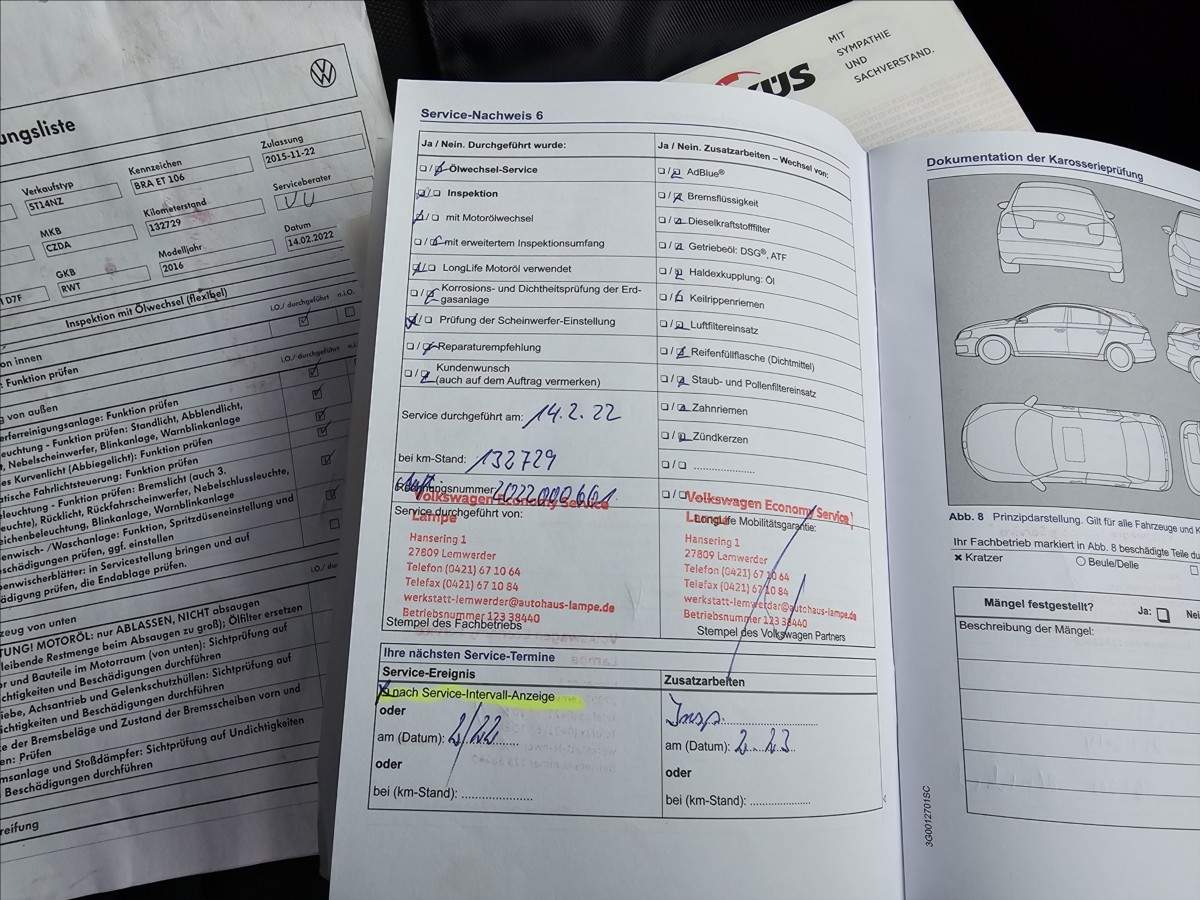 ungsliste
Verkaufstyp
5T14NZ
Kennzeichen
BRA ET 106
Zulassung
2015-11-22
MKB
CZDA
Kilometerstand
132729
Serviceberater
GKB
RWT
Modelljahr
2016
Datum
14.02.2022
1 D7F
Inspektion mit Ölwechsel (flexibel)
on innen
i.O./ durchgeführt
n.i.O.
: Funktion prüfen
g von außen
i.O./ durchgeführt
erferreinigungsanlage: Funktion prüfen
euchtung - Funktion prüfen: Standlicht, Abblendlicht,
t, Nebelscheinwerfer, Blinkanlage, Warnblinkanlage
es Kurvenlicht (Abbiegelicht): Funktion prüfen
atische Fahrlichtsteuerung: Funktion prüfen
eleuchtung - Funktion prüfen: Bremslicht (auch 3.
euchte), Rücklicht, Rückfahrscheinwerfer, Nebelschlussleuchte,
eichenbeleuchtung, Blinkanlage, Warnblinkanlage
enwisch- /Waschanlage: Funktion, Spritzdüseneinstellung und
schädigungen prüfen, ggf. einstellen
enwischerblätter: in Servicestellung bringen und auf
ädigung prüfen, die Endablage prüfen.
zeug von unten
TUNG! MOTORÖL: nur ABLASSEN, NICHT absaugen
leibende Restmenge beim Absaugen zu groß); Ölfilter ersetzen
or und Bauteile im Motorraum (von unten): Sichtprüfung auf
chtigkeiten und Beschädigungen durchführen
iebe, Achsantrieb und Gelenkschutzhüllen: Sichtprüfung auf
chtigkeiten und Beschädigungen durchführen
e der Bremsbeläge und Zustand der Bremsscheiben vorn und
en: Prüfen
msanlage und Stoßdämpfer: Sichtprüfung auf Undichtigkeiten
Beschädigungen durchführen
reifung
Service-Nachweis 6
Ja / Nein. Durchgeführt wurde:
Ölwechsel-Service
Inspektion
mit Motorölwechsel
mit erweitertem Inspektionsumfang
LongLife Motoröl verwendet
Korrosions- und Dichtheitsprüfung der Erd-
gasanlage
Prüfung der Scheinwerfer-Einstellung
Reparaturempfehlung
Kundenwunsch
(auch auf dem Auftrag vermerken)
Service durchgeführt am: 14.2.22
bei km-Stand: 132729
Rechnungsnummer 2022000601
Volkswagen Economy Service
Lampe
Service durchgeführt von:
Hansering 1
27809 Lemwerder
Telefon (0421) 67 10 64
Telefax (0421) 67 10 84
werkstatt-lemwerder@autohaus-lampe.de
Betriebsnummer 123 38440
Stempel des Fachbetriebs
Ja / Nein. Zusatzarbeiten – Wechsel von:
AdBlue®
Bremsflüssigkeit
Dieselkraftstofffilter
Getriebeöl: DSG®, ATF
Haldexkupplung: Öl
Keilrippenriemen
Luftfiltereinsatz
Reifenfüllflasche (Dichtmittel)
Staub- und Pollenfiltereinsatz
Zahnriemen
Zündkerzen
Volkswagen Economy Service
LongLife Mobilitätsgarantie:
Hansering 1
27809 Lemwerder
Telefon (0421) 67 10 64
Telefax (0421) 67 10 84
werkstatt-lemwerder@autohaus-lampe.de
Betriebsnummer 123 38440
Stempel des Volkswagen Partners
Ihre nächsten Service-Termine
Service-Ereignis
nach Service-Intervall-Anzeige
oder
am (Datum): 2/22
oder
bei (km-Stand):
Zusatzarbeiten
Insp.
am (Datum): 2.23
oder
bei (km-Stand):
KÜS
MIT
SYMPATHIE
UND
SACHVERSTAND.
Dokumentation der Karosserieprüfung
Abb. 8 Prinzipdarstellung. Gilt für alle Fahrzeuge und K
Ihr Fachbetrieb markiert in Abb. 8 beschädigte Teile du
Kratzer
Beule/Delle
Mängel festgestellt?
Ja:
Nei
Beschreibung der Mängel:
3G0012701SC